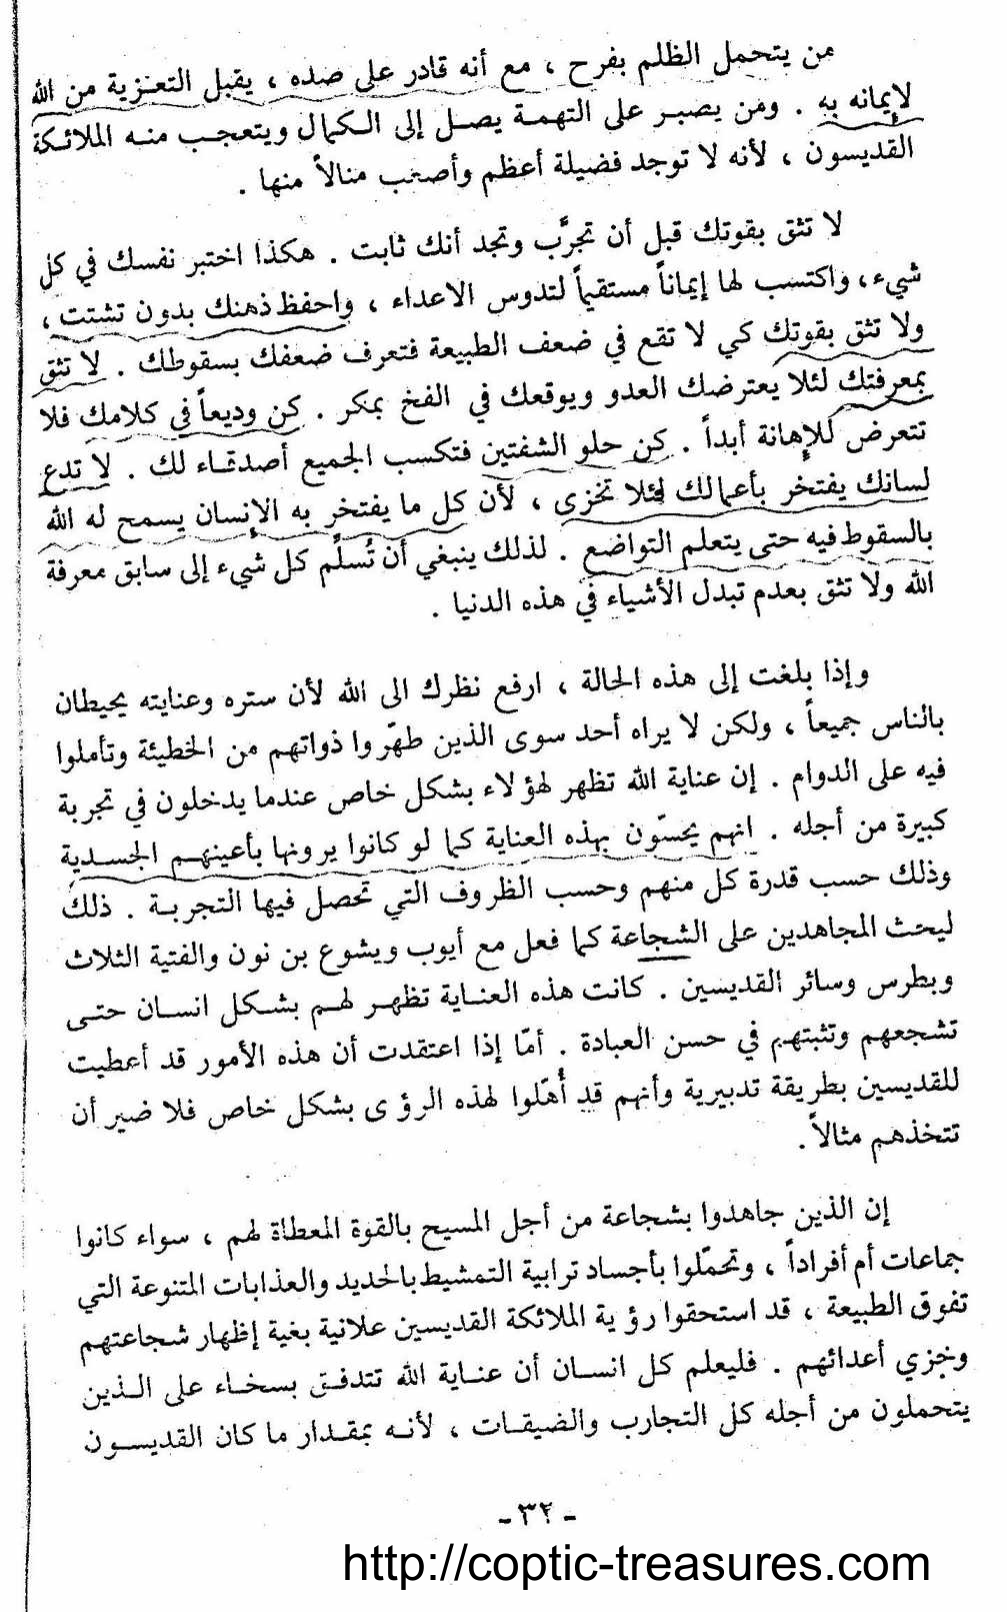 من يتحمل الظلم بفرح ، مع أنه قادر على صده ، يقبل التعزية من الله
لإيمانه به . ومن يصبر على التهمة يصل إلى الكمال ويتعجب منه الملائكة
القديسون ، لأنه لا توجد فضيلة أعظم وأصعب منالاً منها .
لا تثق بقوتك قبل أن تجرَّب وتجد أنك ثابت . هكذا اختبر نفسك في كل
شيء ، واكتسب لها إيماناً مستقيماً لتدوس الاعداء ، واحفظ ذهنك بدون تشتت ،
ولا تثق بقوتك كي لا تقع في ضعف الطبيعة فتعرف ضعفك بسقوطك . لا تثق
بمعرفتك لئلا يعترضك العدو ويوقعك في الفخ بمكر . كن وديعاً في كلامك فلا
تتعرض للإهانة أبداً . كن حلو الشفتين فتكسب الجميع أصدقاء لك . لا تدع
لسانك يفتخر بأعمالك لئلا تخزى ، لأن كل ما يفتخر به الإنسان يسمح له الله
بالسقوط فيه حتى يتعلم التواضع . لذلك ينبغي أن تُسلّم كل شيء إلى سابق معرفة
الله ولا تثق بعدم تبدل الأشياء في هذه الدنيا .
وإذا بلغت إلى هذه الحالة ، ارفع نظرك الى الله لأن ستره وعنايته يحيطان
بالناس جميعاً ، ولكن لا يراه أحد سوى الذين طهّروا ذواتهم من الخطيئة وتأملوا
فيه على الدوام . إن عناية الله تظهر لهؤلاء بشكل خاص عندما يدخلون في تجربة
كبيرة من أجله . انهم يحسّون بهذه العناية كما لو كانوا يرونها بأعينهم الجسدية
وذلك حسب قدرة كل منهم وحسب الظروف التي تحصل فيها التجربة . ذلك
ليحث المجاهدين على الشجاعة كما فعل مع أيوب ويشوع بن نون والفتية الثلاث
وبطرس وسائر القديسين . كانت هذه العناية تظهر لهم بشكل انسان حتى
تشجعهم وتثبتهم في حسن العبادة . أمّا إذا اعتقدت أن هذه الأمور قد أعطيت
للقديسين بطريقة تدبيرية وأنهم قد أُهّلوا لهذه الرؤى بشكل خاص فلا ضير أن
تتخذهم مثالاً .
إن الذين جاهدوا بشجاعة من أجل المسيح بالقوة المعطاة لهم ، سواء كانوا
جماعات أم أفراداً ، وتحمّلوا بأجساد ترابية التمشيط بالحديد والعذابات المتنوعة التي
تفوق الطبيعة ، قد استحقوا رؤية الملائكة القديسين علانية بغية إظهار شجاعتهم
وخزي أعدائهم . فليعلم كل انسان أن عناية الله تتدفق بسخاء على الذين
يتحملون من أجله كل التجارب والضيقات ، لأنه بمقدار ما كان القديسون
- ٣٢ -
http://coptic-treasures.com